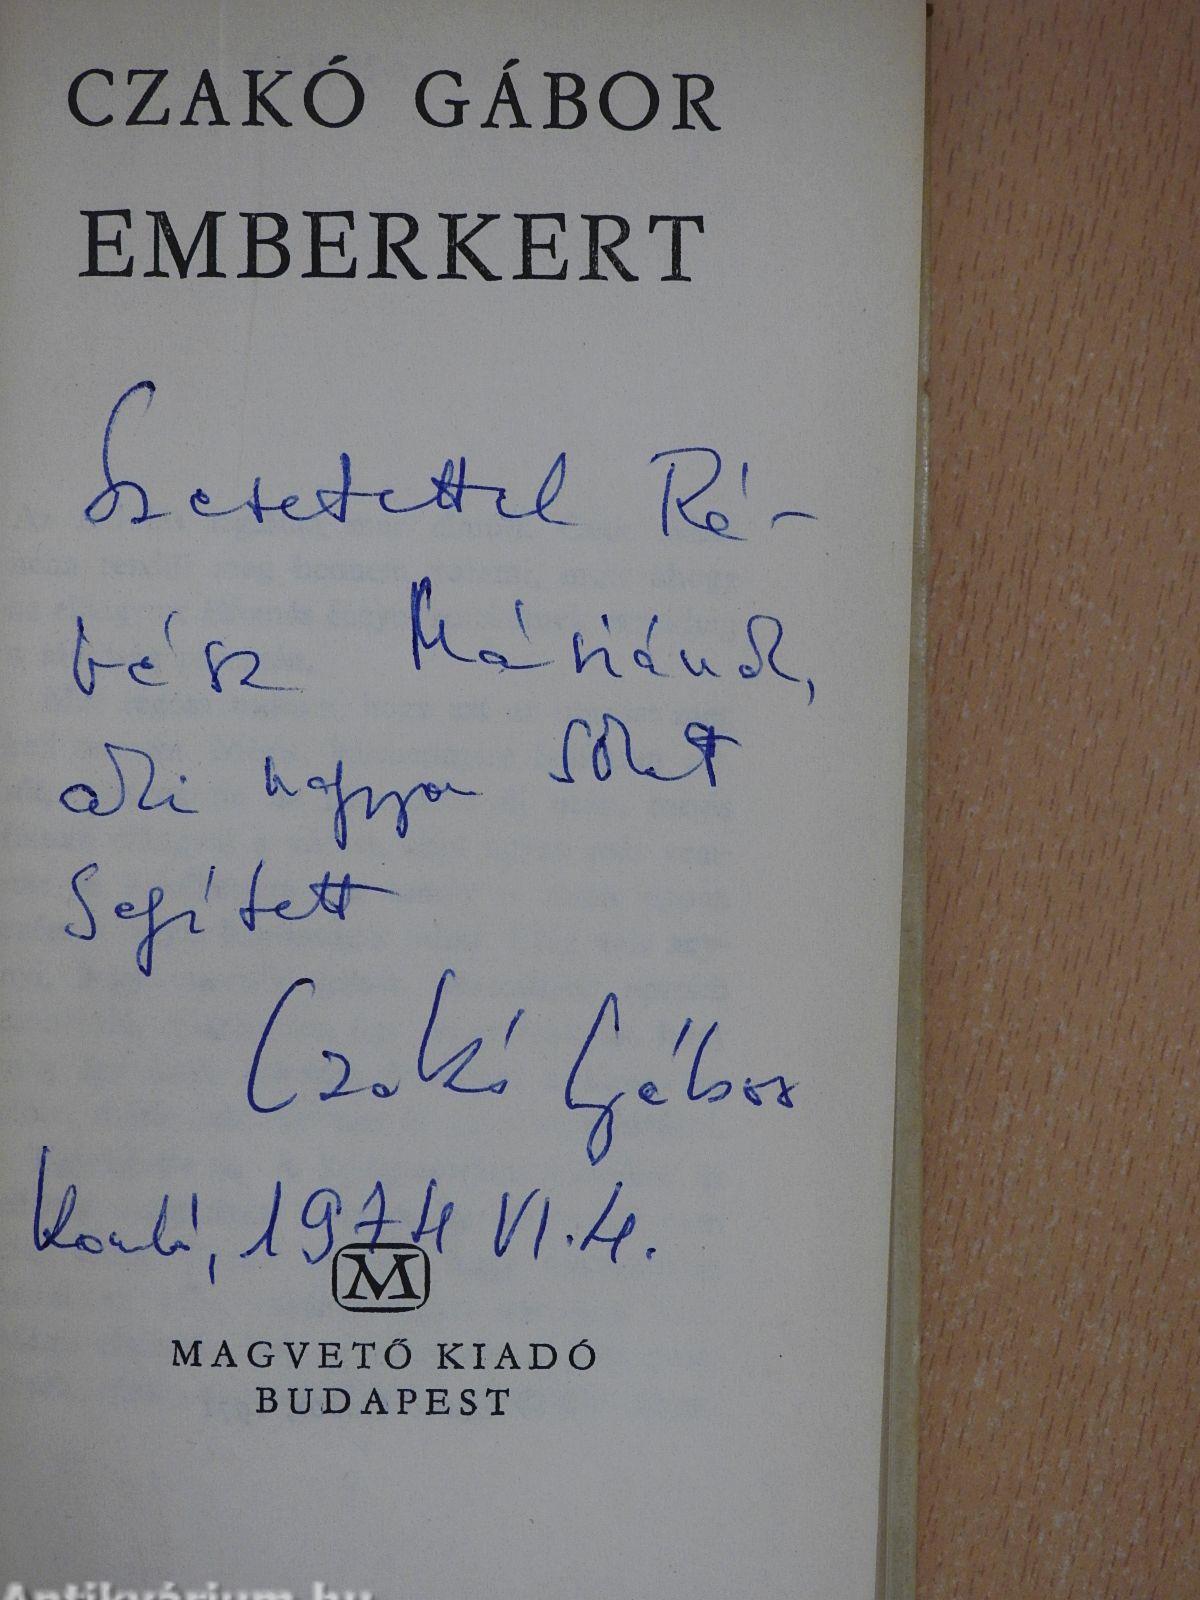 CZAKÓ GÁBOR
EMBERKERT
Szeretettel Ré-
vész Máriának,
aki nagyon sokat
segített
Czakó Gábor
1974 VI. 4.
M
MAGVETŐ KIADÓ
BUDAPEST
Antikvárium.hu